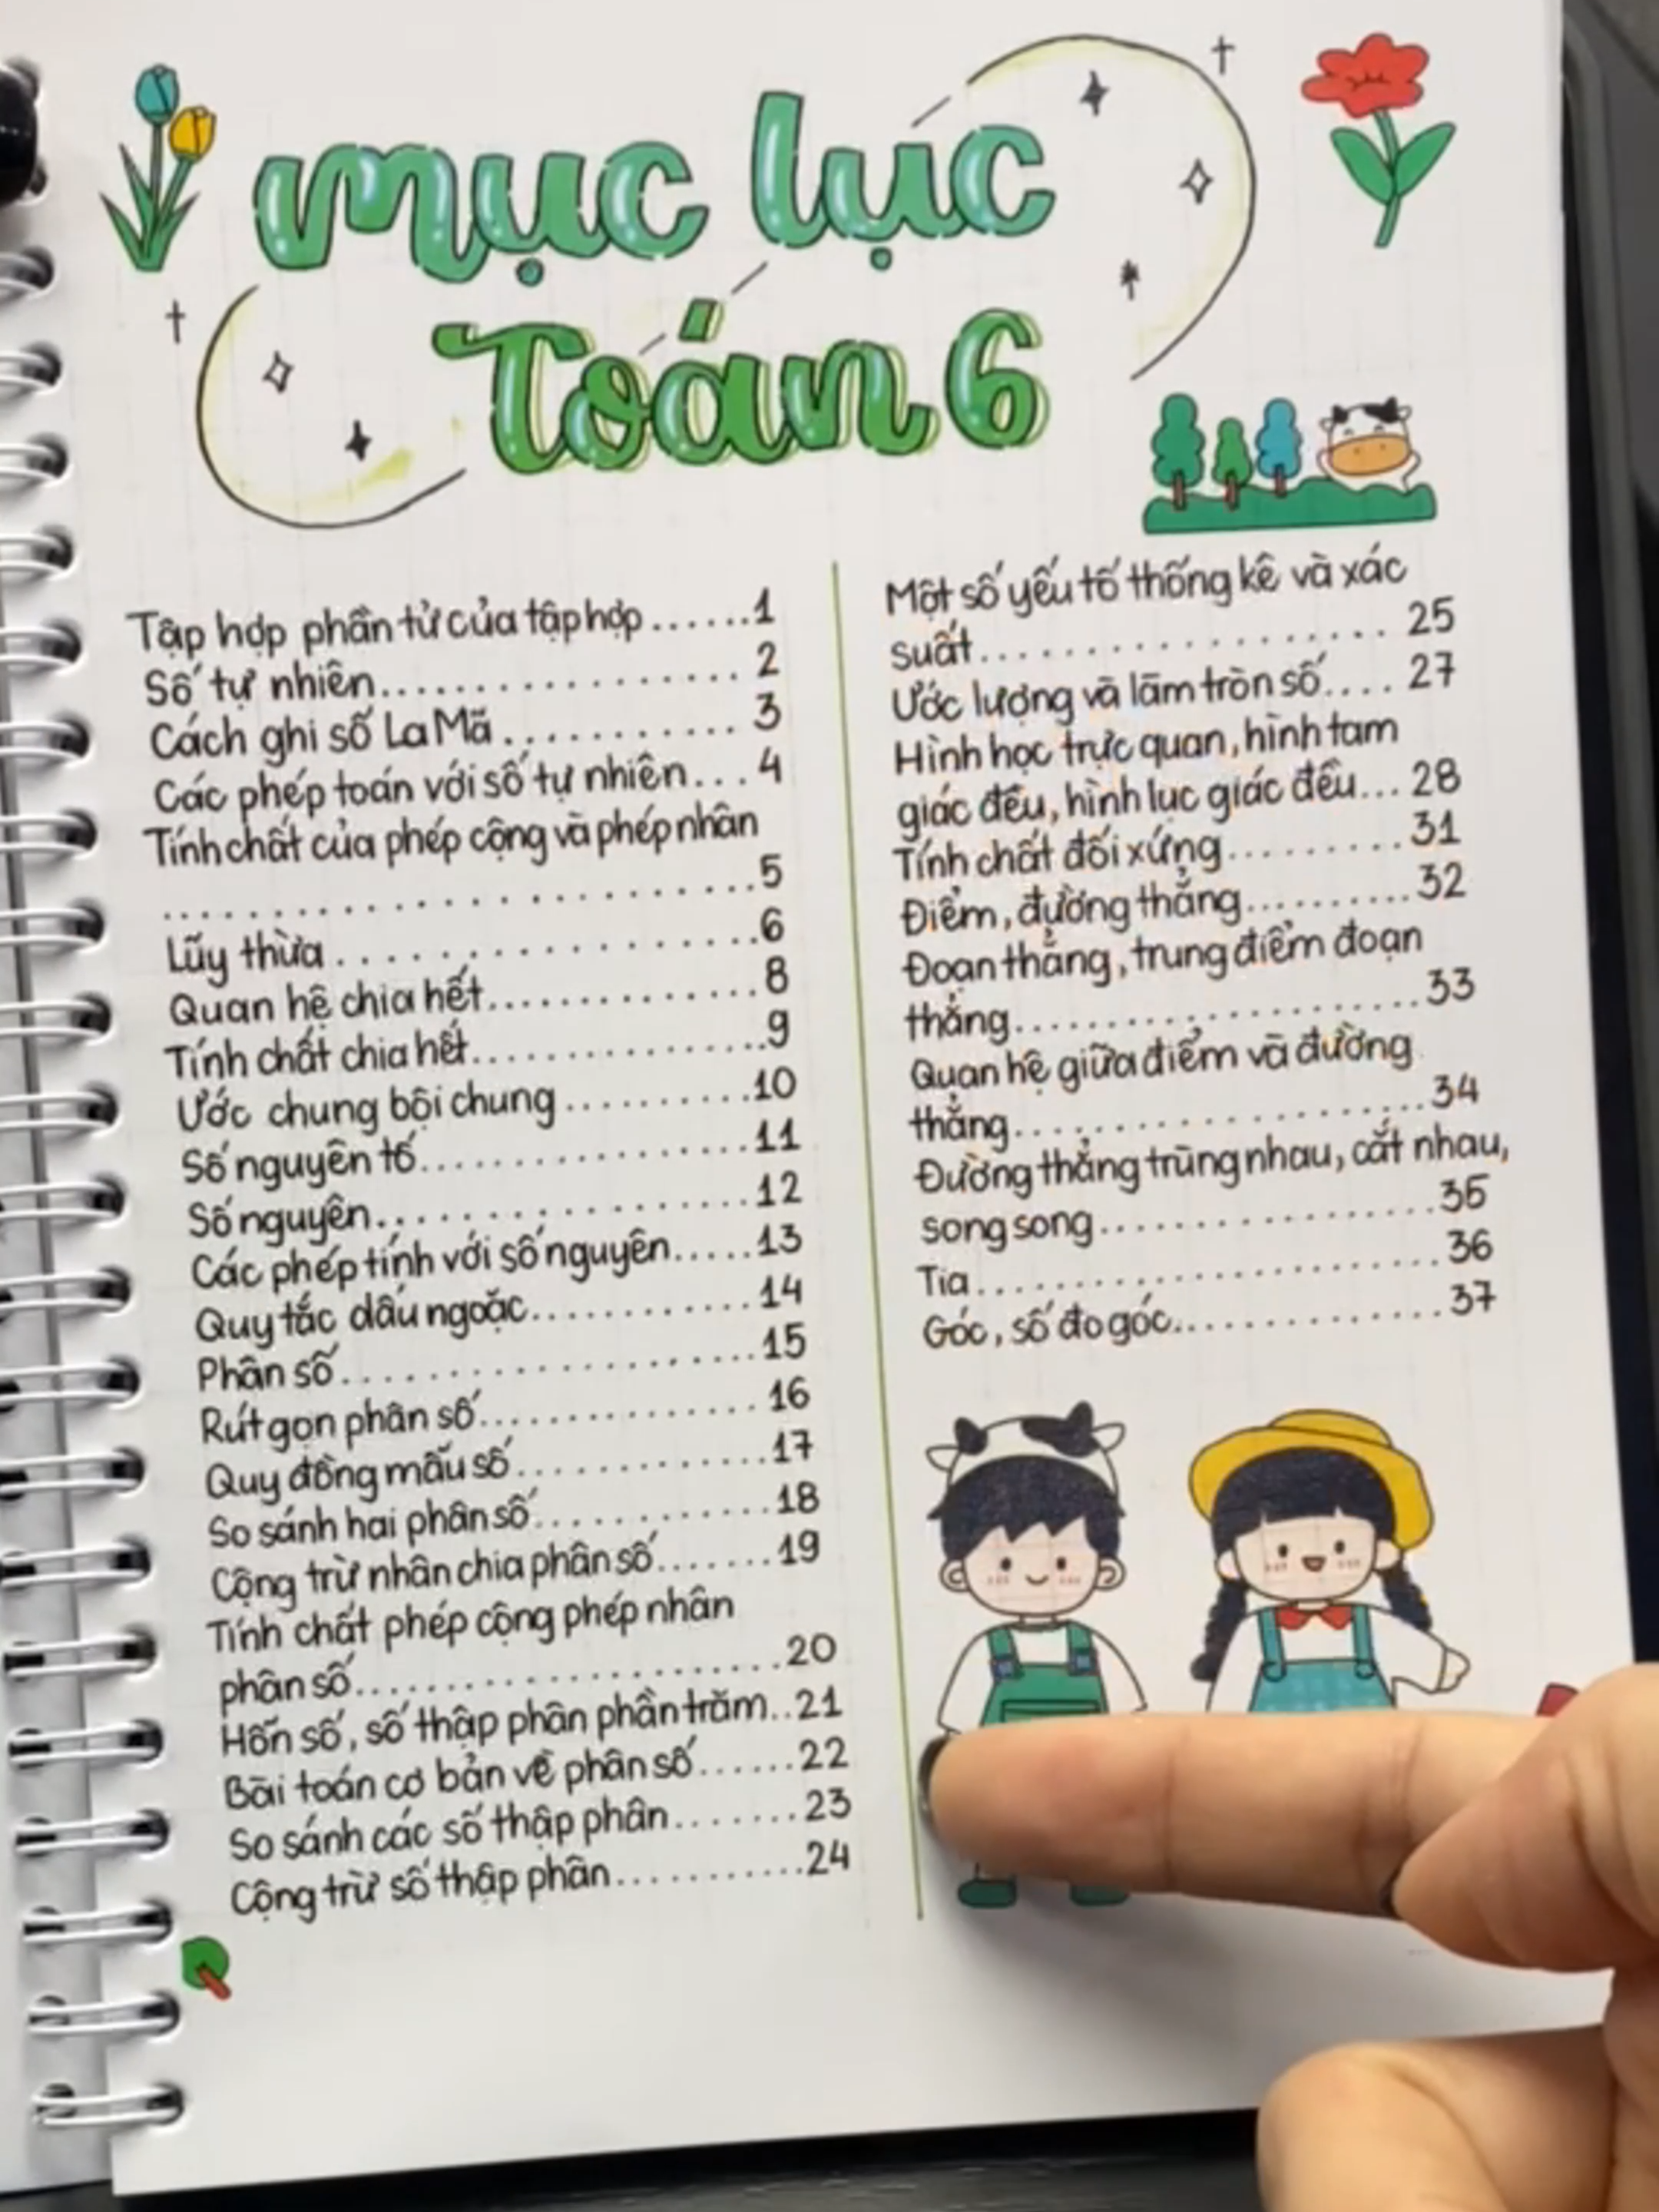 mục lục
Toán 6
Tập hợp phần tử của tập hợp......1
Số tự nhiên.................. 2
Cách ghi số La Mã ............ 3
Các phép toán với số tự nhiên... 4
Tính chất của phép cộng và phép nhân
...........................5
Lũy thừa ...................6
Quan hệ chia hết..............8
Tính chất chia hết................9
Ước chung bội chung ..........10
Số nguyên tố.................11
Số nguyên...................12
Các phép tính với số nguyên.....13
Quy tắc dấu ngoặc............14
Phân số....................15
Rút gọn phân số.............. 16
Quy đồng mẫu số.............17
So sánh hai phân số............18
Cộng trừ nhân chia phân số.......19
Tính chất phép cộng phép nhân
phân số.....................20
Hỗn số, số thập phân phần trăm..21
Bài toán cơ bản về phân số......22
So sánh các số thập phân.......23
Cộng trừ số thập phân...........24
Một số yếu tố thống kê và xác
suất.................. 25
Ước lượng và làm tròn số.... 27
Hình học trực quan, hình tam
giác đều, hình lục giác đều... 28
Tính chất đối xứng..........31
Điểm, đường thẳng..........32
Đoạn thẳng, trung điểm đoạn
thẳng......................33
Quan hệ giữa điểm và đường
thẳng......................34
Đường thẳng trùng nhau, cắt nhau,
song song..................35
Tia........................36
Góc, số đo góc..............37